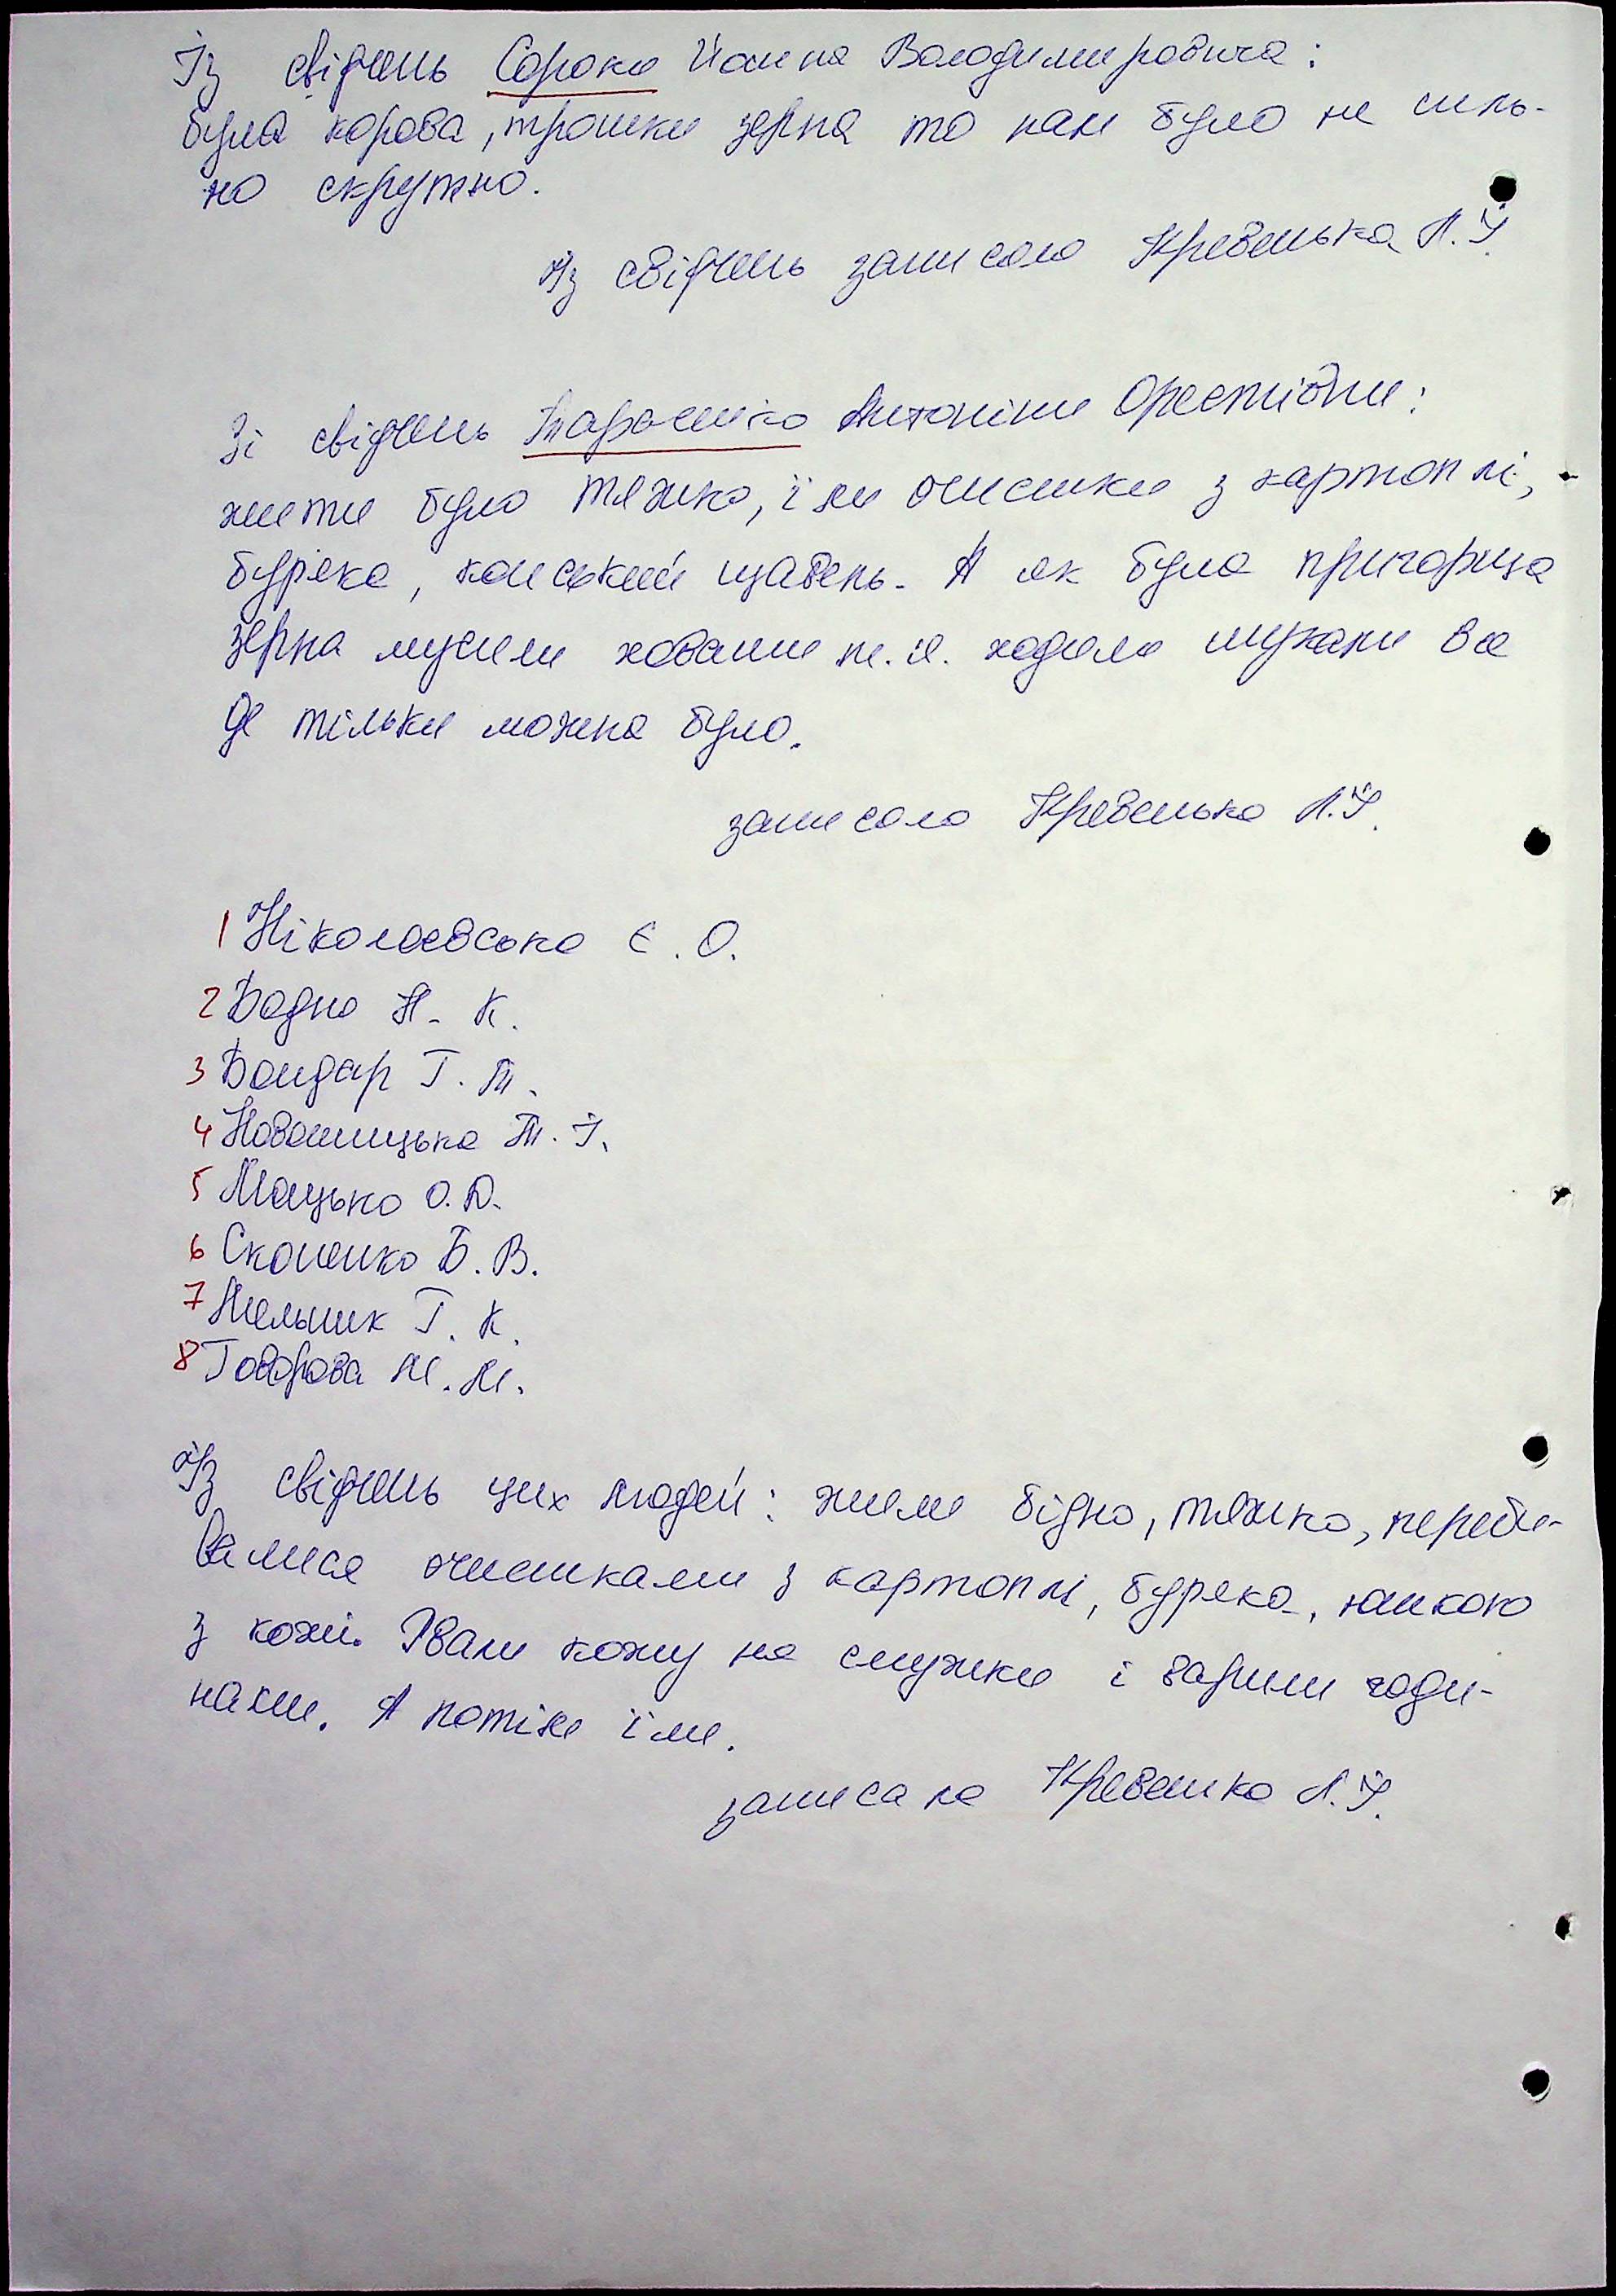 Із свідчень Сороки Йосипа Володимировича:
була корова, трошки зерна то нам було не силь-
но скрутно.
Із свідчень записала Кревенька Л.Й.
Зі свідчень Тарасенко Антоніни Орестівни:
жити було тяжко, їли очистки з картоплі,
буряка, конський щавель. А як була пригорща
зерна мусили ховати т.я. ходили шукали все
де тільки можна було.
записала Кревенька Л.Й.
1 Ніколаєвська Є. О.
2 Бадно Н. К.
3 Бондар Г. Т.
4 Новошицька Т. І.
5 Мацько О. Д.
6 Скопенко Б. В.
7 Мельник Г. К.
8 Говорова М. М.
Із свідчень цих людей: жили бідно, тяжко, переби-
валися очистками з картоплі, буряка, юшкою
з кожі. Рвали кожу на смужки і варили годи-
нами. А потім їли.
записала Кревенька Л.Й.